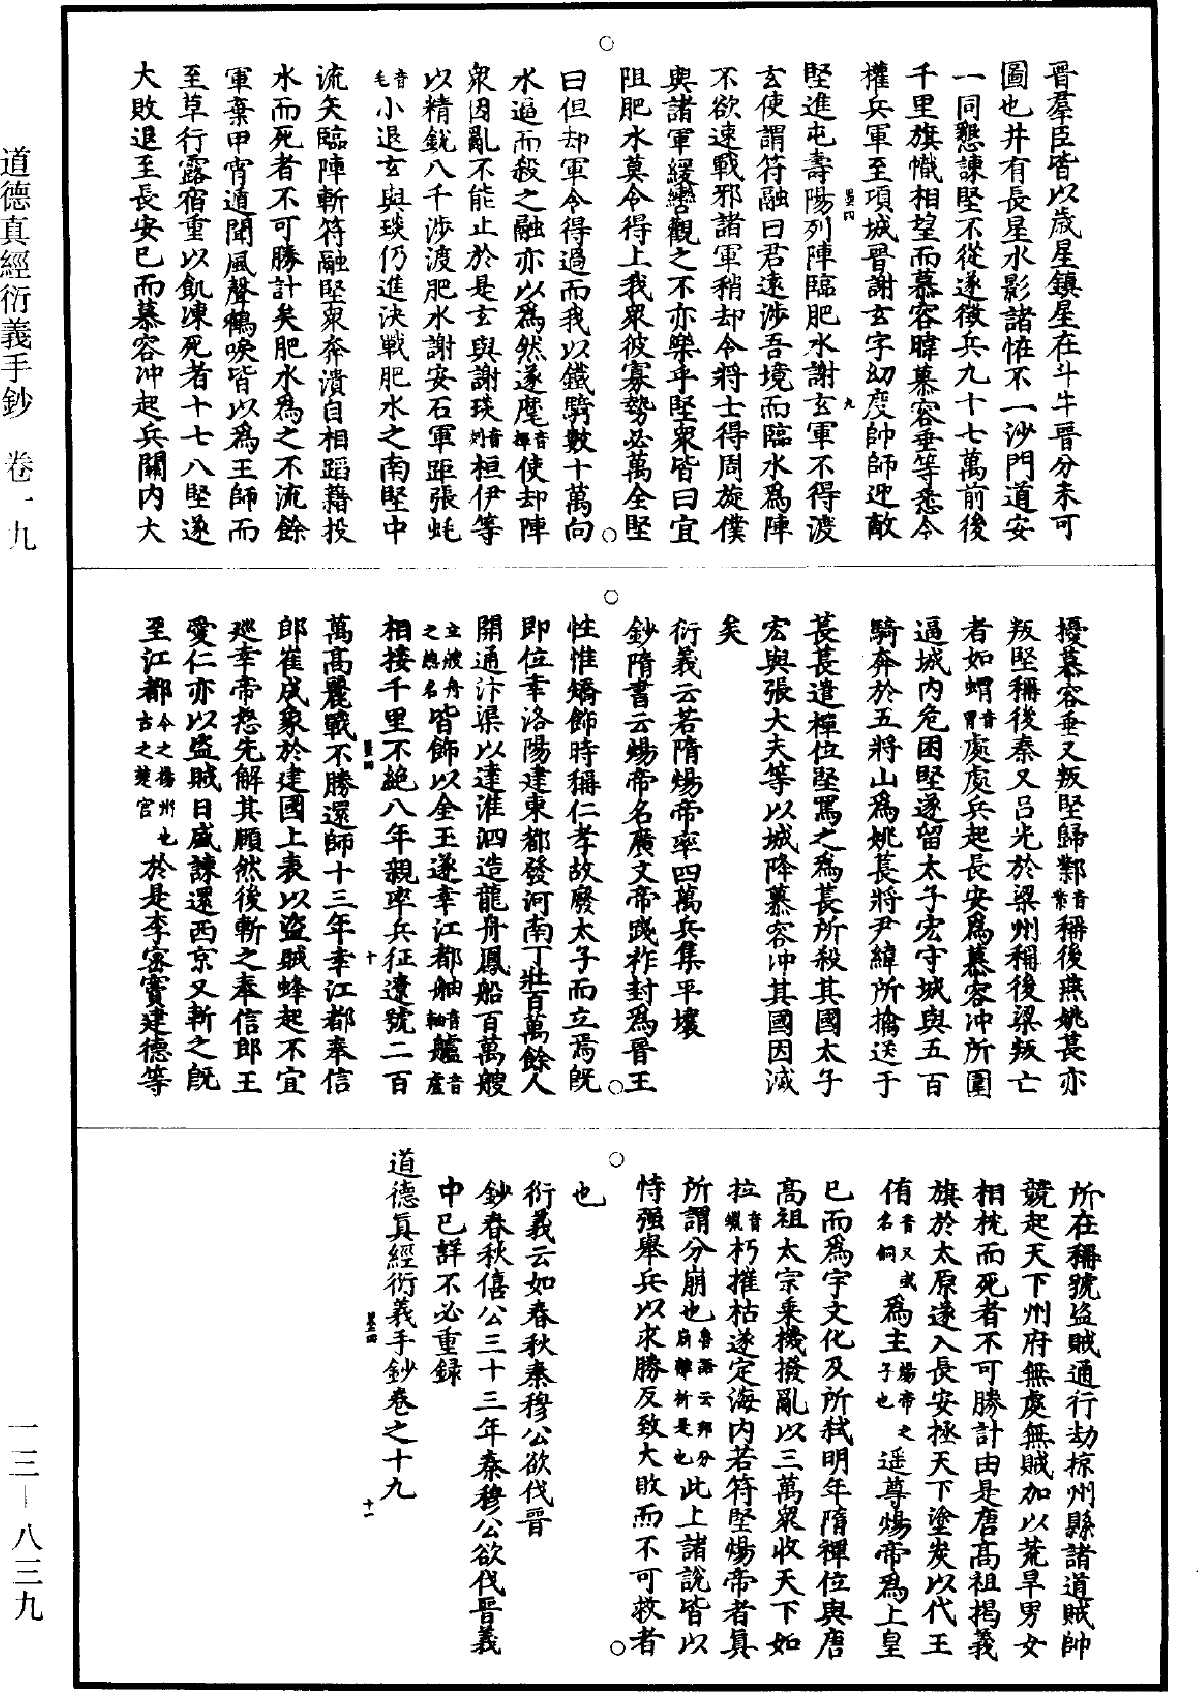 晉羣臣皆以歲星鎮星在斗牛晉分未可
圖也井有長星水影諸怪不一沙門道安
一同懇諫堅不從遂徵兵九十七萬前後
千里旗幟相望而慕容暐慕容垂等悉令
權兵軍至項城晉謝玄字幼度帥師迎敵
堅進屯壽陽列陣臨肥水謝玄軍不得渡
玄使謂符融曰君遠涉吾境而臨水爲陣
不欲速戰邪諸軍稍却令將士得周旋僕
與諸軍緩轡觀之不亦樂乎堅衆皆曰宜
阻肥水莫令得上我衆彼寡勢必萬全堅
曰但却軍令得過而我以鐵騎數十萬向
水逼而殺之融亦以爲然遂麾音揮使却陣
衆因亂不能止於是玄與謝琰音剡桓伊等
以精銳八千涉渡肥水謝安石軍距張蚝
音毛小退玄與琰仍進決戰肥水之南堅中
流矢臨陣斬符融堅衆奔潰自相蹈藉投
水而死者不可勝計矣肥水爲之不流餘
軍棄甲宵遁聞風聲鶴唳皆以爲王師而
至草行露宿重以飢凍死者十七八堅遂
大敗退至長安已而慕容冲起兵關內大
擾慕容垂又叛堅歸鄴音業稱後燕姚萇亦
叛堅稱後秦又呂光於梁州稱後梁叛亡
者如蝟音胃處處兵起長安爲慕容冲所圍
逼城內危困堅遂留太子宏守城與五百
騎奔於五將山爲姚萇將尹緯所擒送于
萇萇遣禪位堅罵之爲萇所殺其國太子
宏與張大夫等以城降慕容冲其國因滅
矣
衍義云若隋煬帝率四萬兵集平壤
鈔隋書云煬帝名廣文帝踐祚封爲晉王
性惟矯飾時稱仁孝故廢太子而立焉旣
即位幸洛陽建東都發河南丁壯百萬餘人
開通汴渠以達淮泗造龍舟鳳船百萬艘
立艘舟之總名皆飾以金玉遂幸江都舳音軸艫音盧
相接千里不絕八年親率兵征遼號二百
萬高麗戰不勝還師十三年幸江都奉信
郎崔成象於建國上表以盜賊蜂起不宜
巡幸帝怒先解其頤然後斬之奉信郎王
愛仁亦以盜賊日盛諫還西京又斬之旣
至江都今之揚州也古之楚宮於是李密竇建德等
所在稱號盜賊通行劫掠州縣諸道賊帥
競起天下州府無處無賊加以荒旱男女
相枕而死者不可勝計由是唐高祖揭義
旗於太原遂入長安拯天下塗炭以代王
侑音又或名侗爲主煬帝之子也遥尊煬帝爲上皇
已而爲宇文化及所弒明年隋禪位與唐
高祖太宗乗機撥亂以三萬衆收天下如
拉音蠟朽摧枯遂定海內若符堅煬帝者眞
所謂分崩也魯語云邦分崩離析是也此上諸說皆以
恃强舉兵以求勝反致大敗而不可救者
也
衍義云如春秋秦穆公欲伐晉
鈔春秋僖公三十三年秦穆公欲伐晉義
中已詳不必重録
道德眞經衍義手鈔卷之十九
墨四
九
墨四
十
墨四
十一
道德真經衍義手鈔 卷一九
一三—八三九